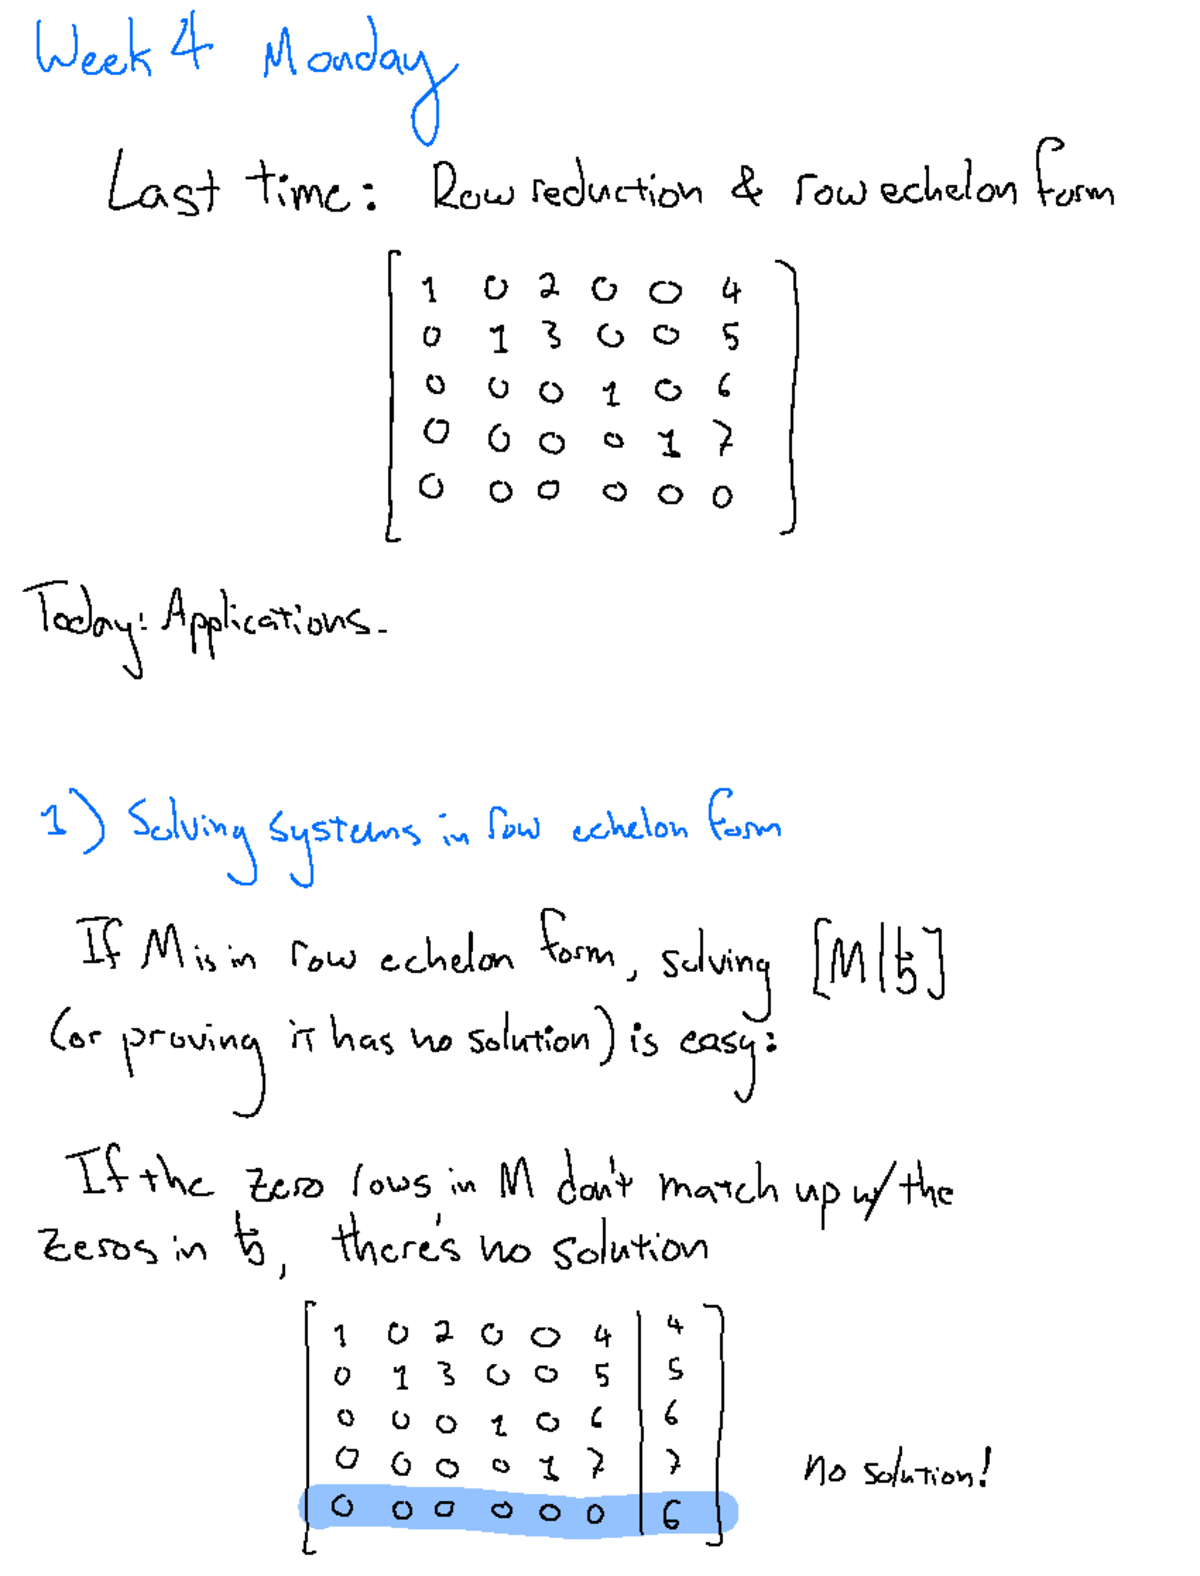 Week 4 Monday
Last time: Row reduction & row echelon form
1 0 2 0 0 4
0 1 3 0 0 5
0 0 0 1 0 6
0 0 0 0 1 7
0 0 0 0 0 0
Today: Applications.
1) Solving systems in row echelon form
If M is in row echelon form, solving [M|b]
(or proving it has no solution) is easy:
If the zero rows in M don't match up w/ the
zeros in b, there's no solution
1 0 2 0 0 4 | 4
0 1 3 0 0 5 | 5
0 0 0 1 0 6 | 6
0 0 0 0 1 7 | 7
no solution!
0 0 0 0 0 0 | 6